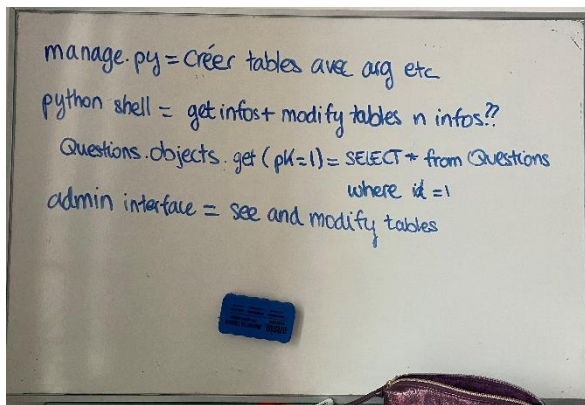 manage.py = Créer tables avec arg etc
python shell = get infos + modify tables n infos??
Questions.objects.get(pk=1) = SELECT * from Questions
where id = 1
admin interface = see and modify tables